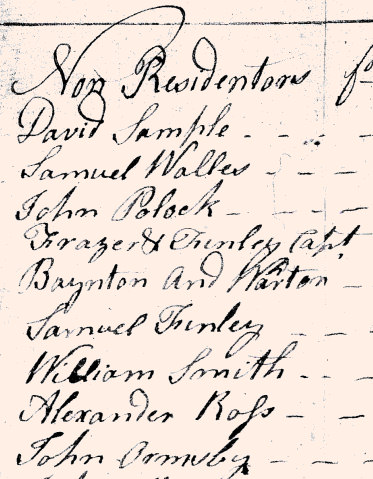 Non Residentors
David Sample - - - -
Samuel Walles - - -
John Polock - - - -
Frazer & Finley Capt
Baynton And Warton -
Samuel Finley - -
William Smith - - -
Alexander Ross - -
John Ormsby - - - -